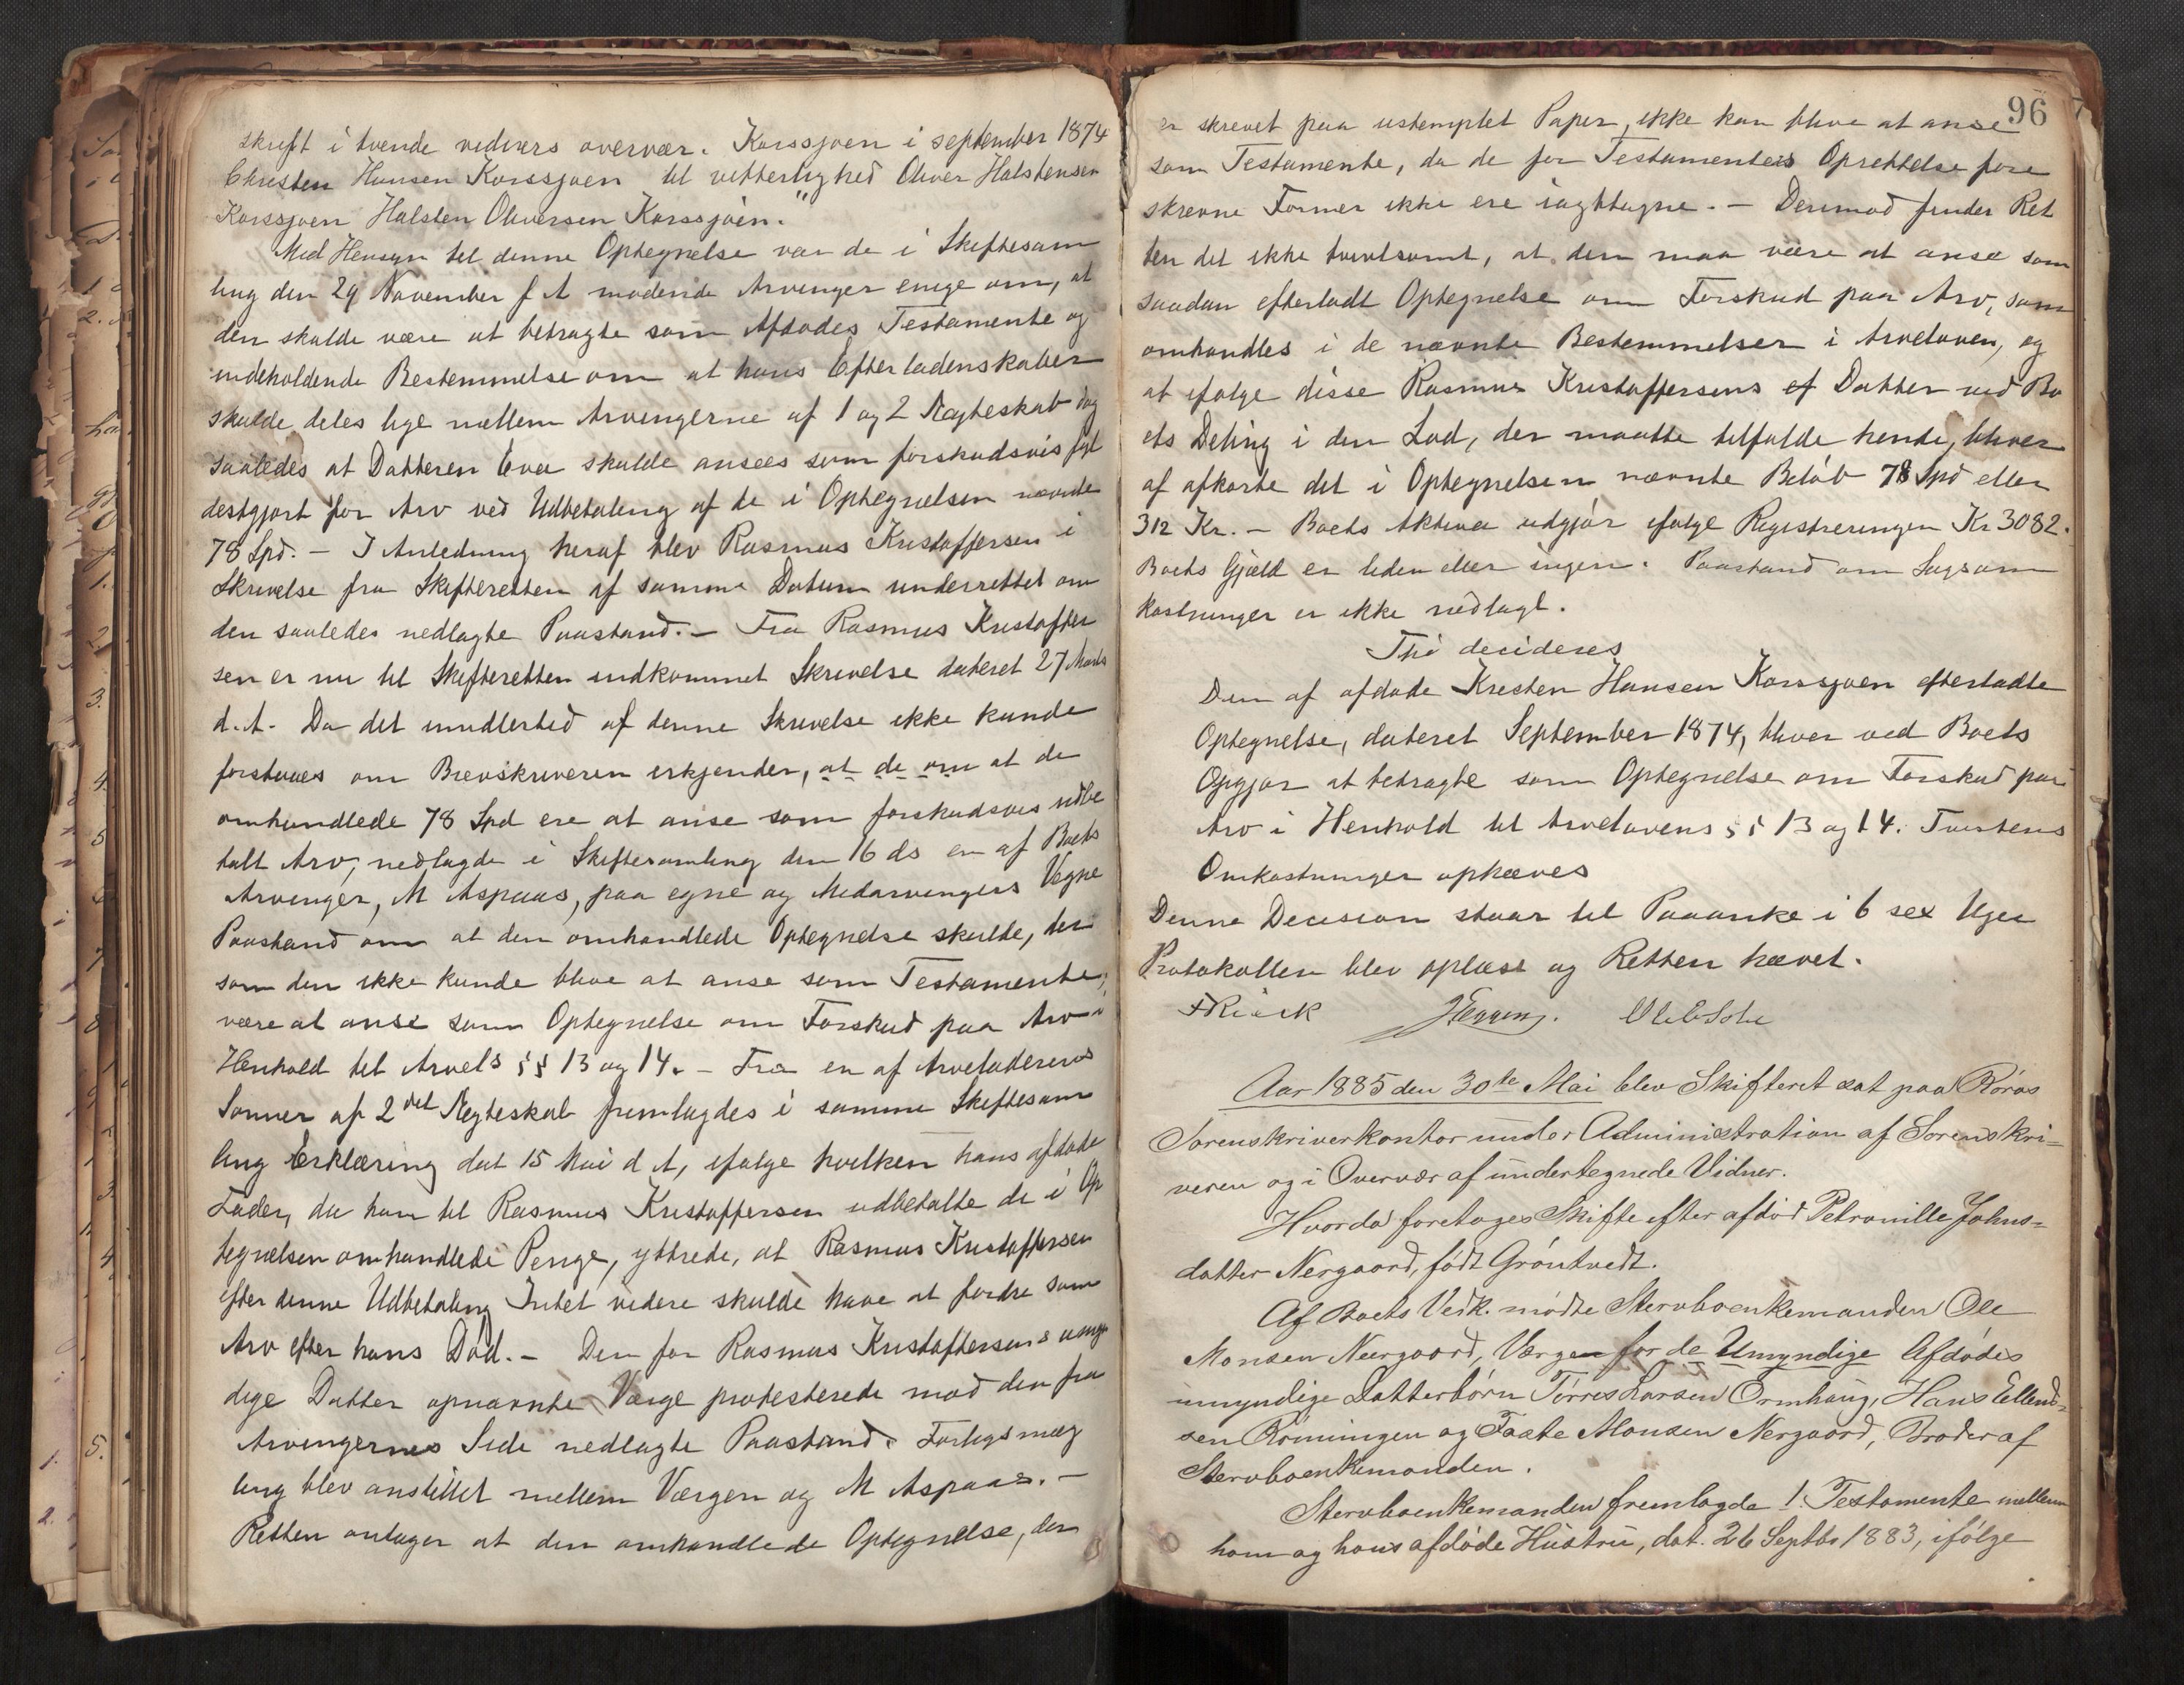 skrift i tvende vidners overvær. Korssjoen i september 1874
Christen Hansen Korssjoen til vitterlighed Oliver Halstensen
Korssjoen Halsten Oliversen Korssjöen."
Med Hensyn til denne Optegnelse var de i Skiftesam
ling den 29 November f A mødende Arvinger enige om, at
den skulde være at betragte som Afdødes Testamente og
indeholdende Bestemmelse om at hans Efterladenskaber
skulde deles lige mellem Arvingerne af 1 og 2 Ægteskab dog
saaledes at Datteren Eva skulde ansees som forskudsvis fyl
destgjort for Arv ved Udbetaling af de i Optegnelsen nævnte
78 Spd. – I Anledning heraf blev Rasmus Kristoffersen i
Skrivelse fra Skifteretten af samme Datum underrettet om
den saaledes nedlagte Paastand. – Fra Rasmus Kristoffer
sen er nu til Skifteretten indkommet Skrivelse dateret 27 Marts
d. A. Da det imidlertid af denne Skrivelse ikke kunde
forstaaes om Brevskriveren erkjender, at de om at de
omhandlede 78 Spd ere at anse som forskudsvis udbe
talt Arv, nedlagde i Skiftesamling den 16 ds en af Boets
Arvinger, M Aspaas, paa egne og Medarvingers Vegne
Paastand om at den omhandlede Optegnelse skulde, der
som den ikke kunde blive at anse som Testamente,
være at anse som Optegnelse om Forskud paa Arv i
Henhold til Arvels §§ 13 og 14. – Fra en af Arveladerens
Sønner af 2det Ægteskab fremlagdes i samme Skiftesam
ling Erklæring dat 15 Mai d A, ifølge hvilken hans afdøde
Fader, da han til Rasmus Kristoffersen udbetalte de i Op
tegnelsen omhandlede Penge, yttrede, at Rasmus Kristoffersen
efter denne Udbetaling Intet videre skulde have at fordre som
Arv efter hans Död. – Den for Rasmus Kristoffersens umyn
dige Datter opnævnte Værge protesterede mod den fra
Arvingernes Side nedlagte Paastand. Forligsmæg
ling blev anstillet mellem Værgen og M Aspaas. –
Retten antager at den omhandlede Optegnelse, der
96
er skrevet paa ustemplet Papir, ikke kan blive at anse
som Testamente, da de for Testamenters Oprettelse fore
skrevne Former ikke ere iagttagne. – Derimod finder Ret
ten det ikke tvivlsomt, at den maa være at anse som
saadan efterladt Optegnelse om Forskud paa Arv, som
omhandles i de nævnte Bestemmelser i Arveloven, og
at ifølge disse Rasmus Kristoffersens ef Datter ved Bo
ets Deling i den Lod, der maatte tilfalde hende, bliver
af afkorte det i Optegnelsen nævnte Beløb 78 Spd eller
312 Kr. – Boets Aktiva udgjør ifølge Registreringen Kr 3082.
Boets Gjæld er liden eller ingen. Paastand om Sagsom
kostninger er ikke nedlagt.
Thi decideres
Den af afdøde Kristen Hansen Korssjoen efterladte
Optegnelse, dateret September 1874, bliver ved Boets
Opgjør at betragte som Optegnelse om Forskud paa
Arv i Henhold til Arvelovens §§ 13 og 14. Tvistens
Omkostninger ophæves
Denne Decision staar til Paaanke i 6 sex Uger
Protokollen blev oplæst og Retten hævet.
Aar 1885 den 30te Mai blev Skifteret sat paa Röros
Sorenskriverkontor under Administration af Sorenskri=
veren og i Overvær af undertegnede Vidner.
Hvorda foretoges Skifte efter afdød Petronille Johns=
datter Nergaard, født Gröntvedt.
Af Boets Vedk. mødte Stervboenkemanden Ole
Monsen Neergaard, Værgen for de Umyndige Afdødes
umyndige Datterbörn Törres Larsen Ormhaug, Hans Ellend=
sen Röningen og Faste Monsen Nergaard, Broder af
Stervboenkemanden.
Stervboenkemanden fremlagde 1. Testamente mellem
ham og hans afdöde Hustru, dat. 26 Septbr 1883, ifölge